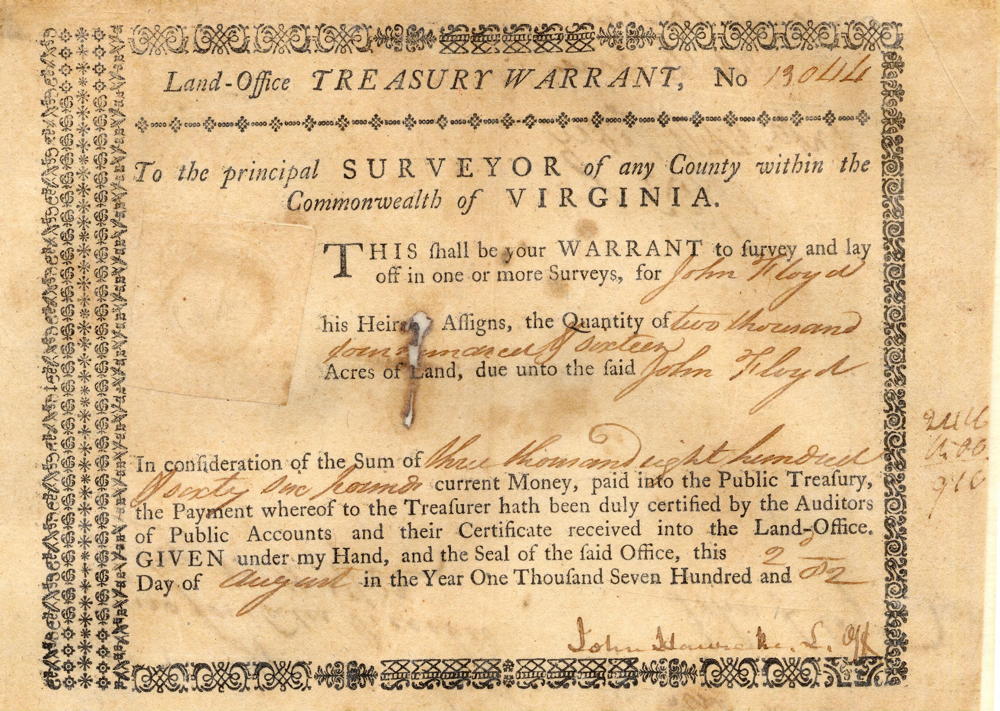 Land-Office TREASURY WARRANT, No 13044
To the principal SURVEYOR of any County within the
Commonwealth of VIRGINIA.
THIS ſhall be your WARRANT to ſurvey and lay
off in one or more Surveys, for John Floyd
his Heirs Aſſigns, the Quantity of two thousand
four hundred & Sixteen
Acres of Land, due unto the ſaid John Floyd
In conſideration of the Sum of three thousand eight hundred
& sixty six pounds current Money, paid into the Public Treaſury,
the Payment whereof to the Treaſurer hath been duly certified by the Auditors
of Public Accounts and their Certificate received into the Land-Office.
GIVEN under my Hand, and the Seal of the ſaid Office, this 2d
Day of August in the Year One Thouſand Seven Hundred and 82
John L. Off
2416